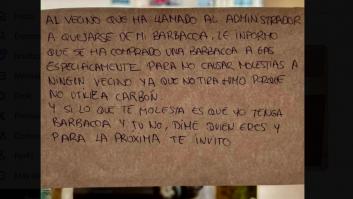 AL VECINO QUE HA LLAMADO AL ADMINISTRADOR
A QUEJARSE DE MI BARBACOA, LE INFORMO
QUE SE HA COMPRADO UNA BARBACOA A GAS
ESPECIFICAMENTE PARA NO CAUSAR MOLESTIAS A
NINGUN VECINO YA QUE NO TIRA HUMO PORQUE
NO UTILIZA CARBÓN.
Y SI LO QUE TE MOLESTA ES QUE YO TENGA
BARBACOA Y TU NO, DIME QUIEN ERES Y
PARA LA PROXIMA TE INVITO